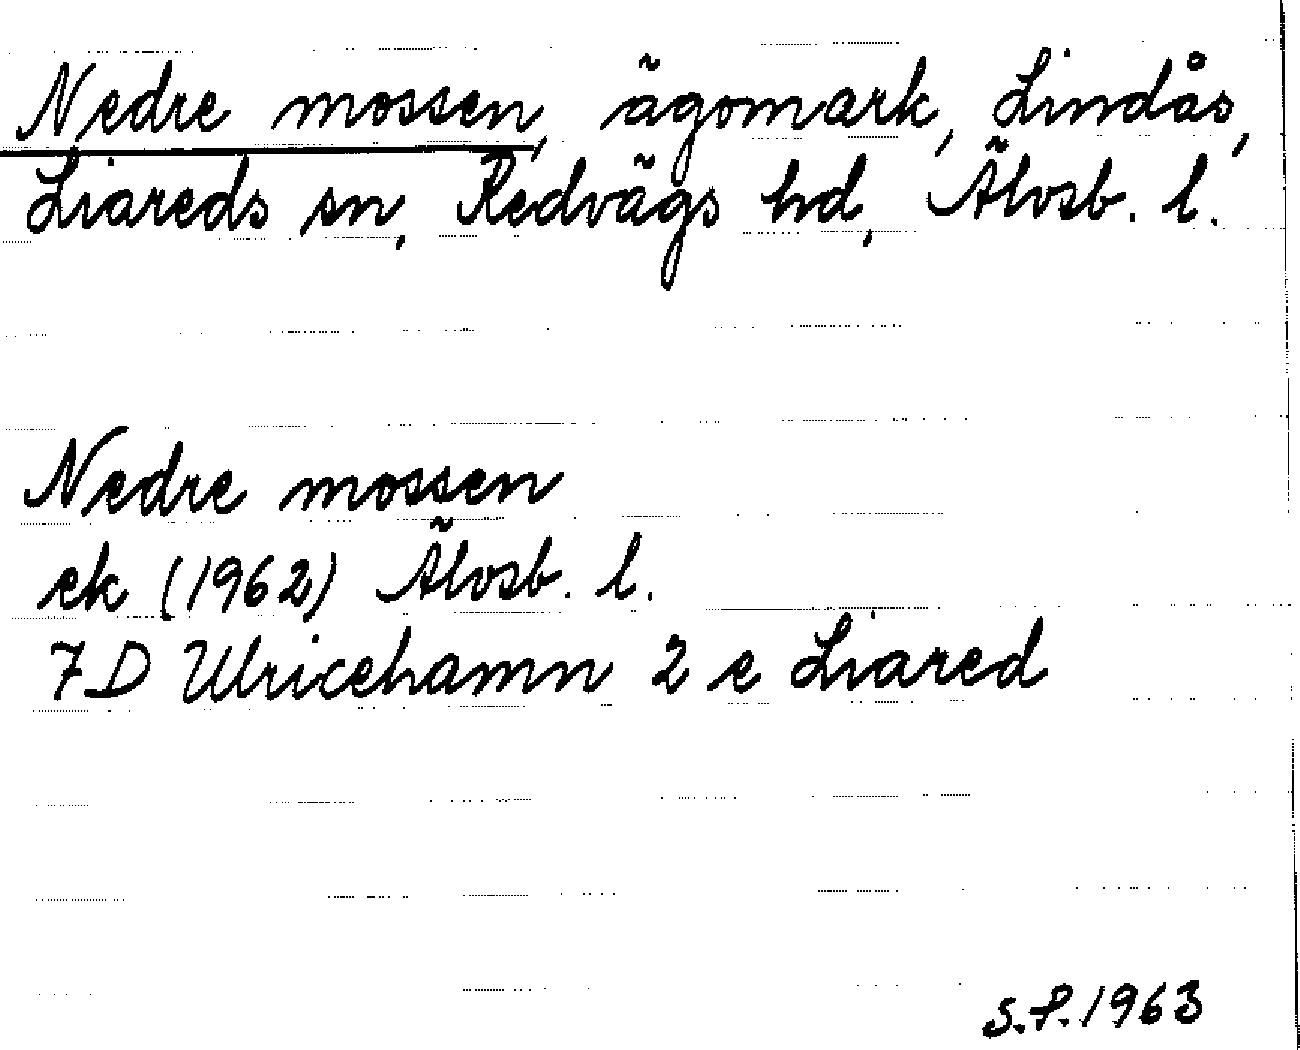 Nedre mossen, ägomark, Lindås,
Liareds sn, Redvägs hd, Älvsb. l.
Nedre mossen
ek (1962) Älvsb. l.
7D Ulricehamn 2 e Liared
S.P. 1963